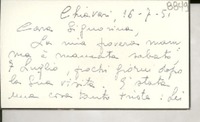 8849
Chiavari, 16-7-51
Cara Signorina,
La mia povera mam
ma è mancata sabato
7 Luglio, pochi giorni dopo
la sua visita. È stata
una cosa tanto triste: Lei